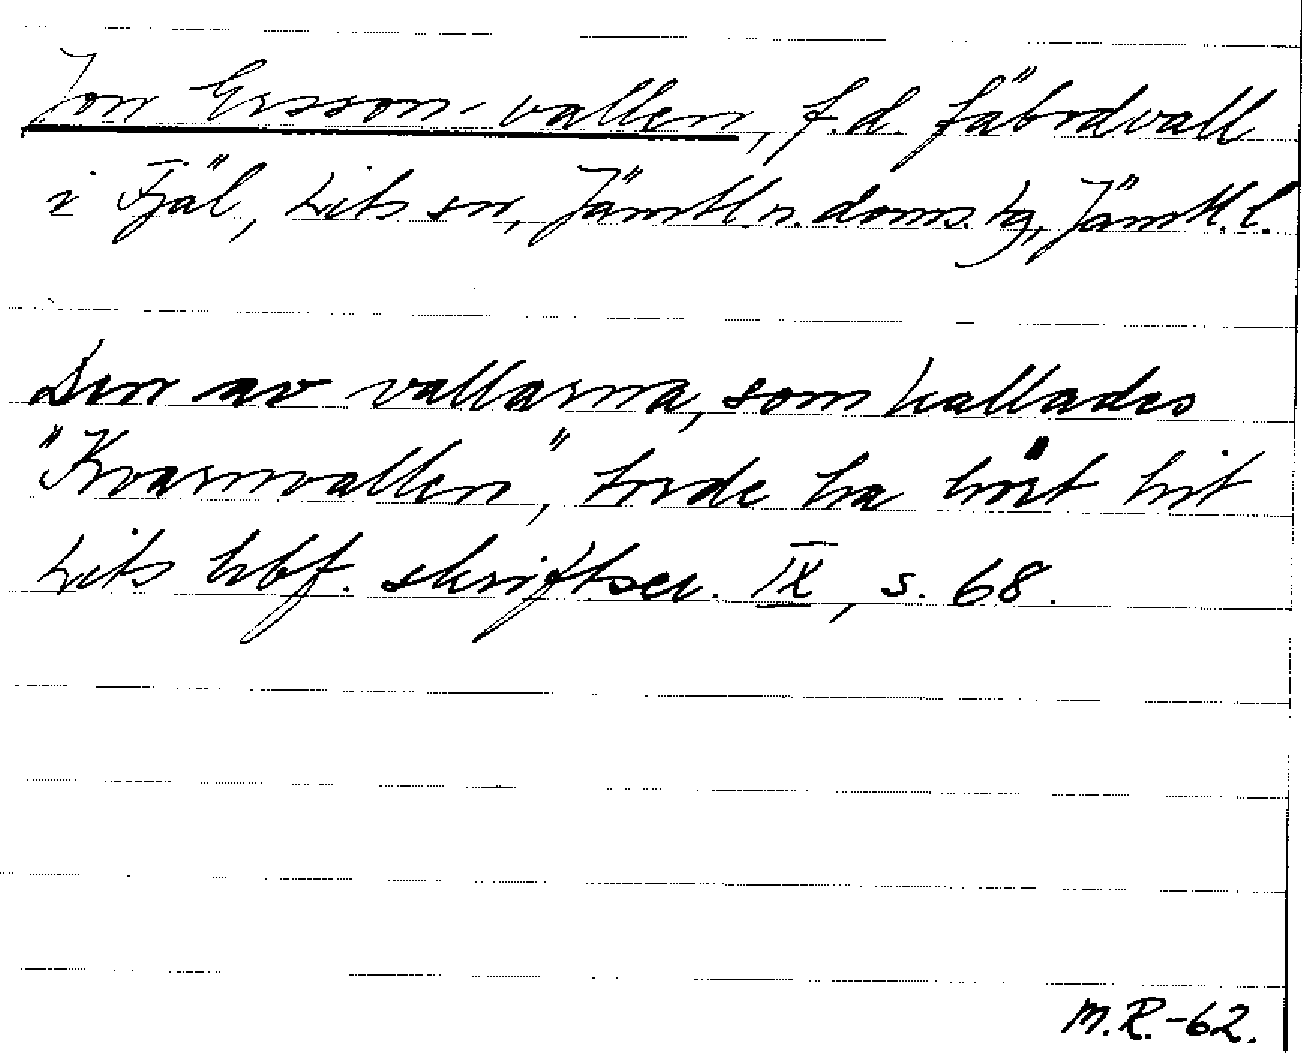 Jon Ersson-vallen, f.d. fäbodvall
i Fjäl, Lits sn, Jämtl. n. doms. tg, Jämtl. l.
Den av vallarna, som kallades
"Kvarnvallen", torde ha hört hit
Lits hbf. skriftser. IX, s. 68.
M.R.-62.